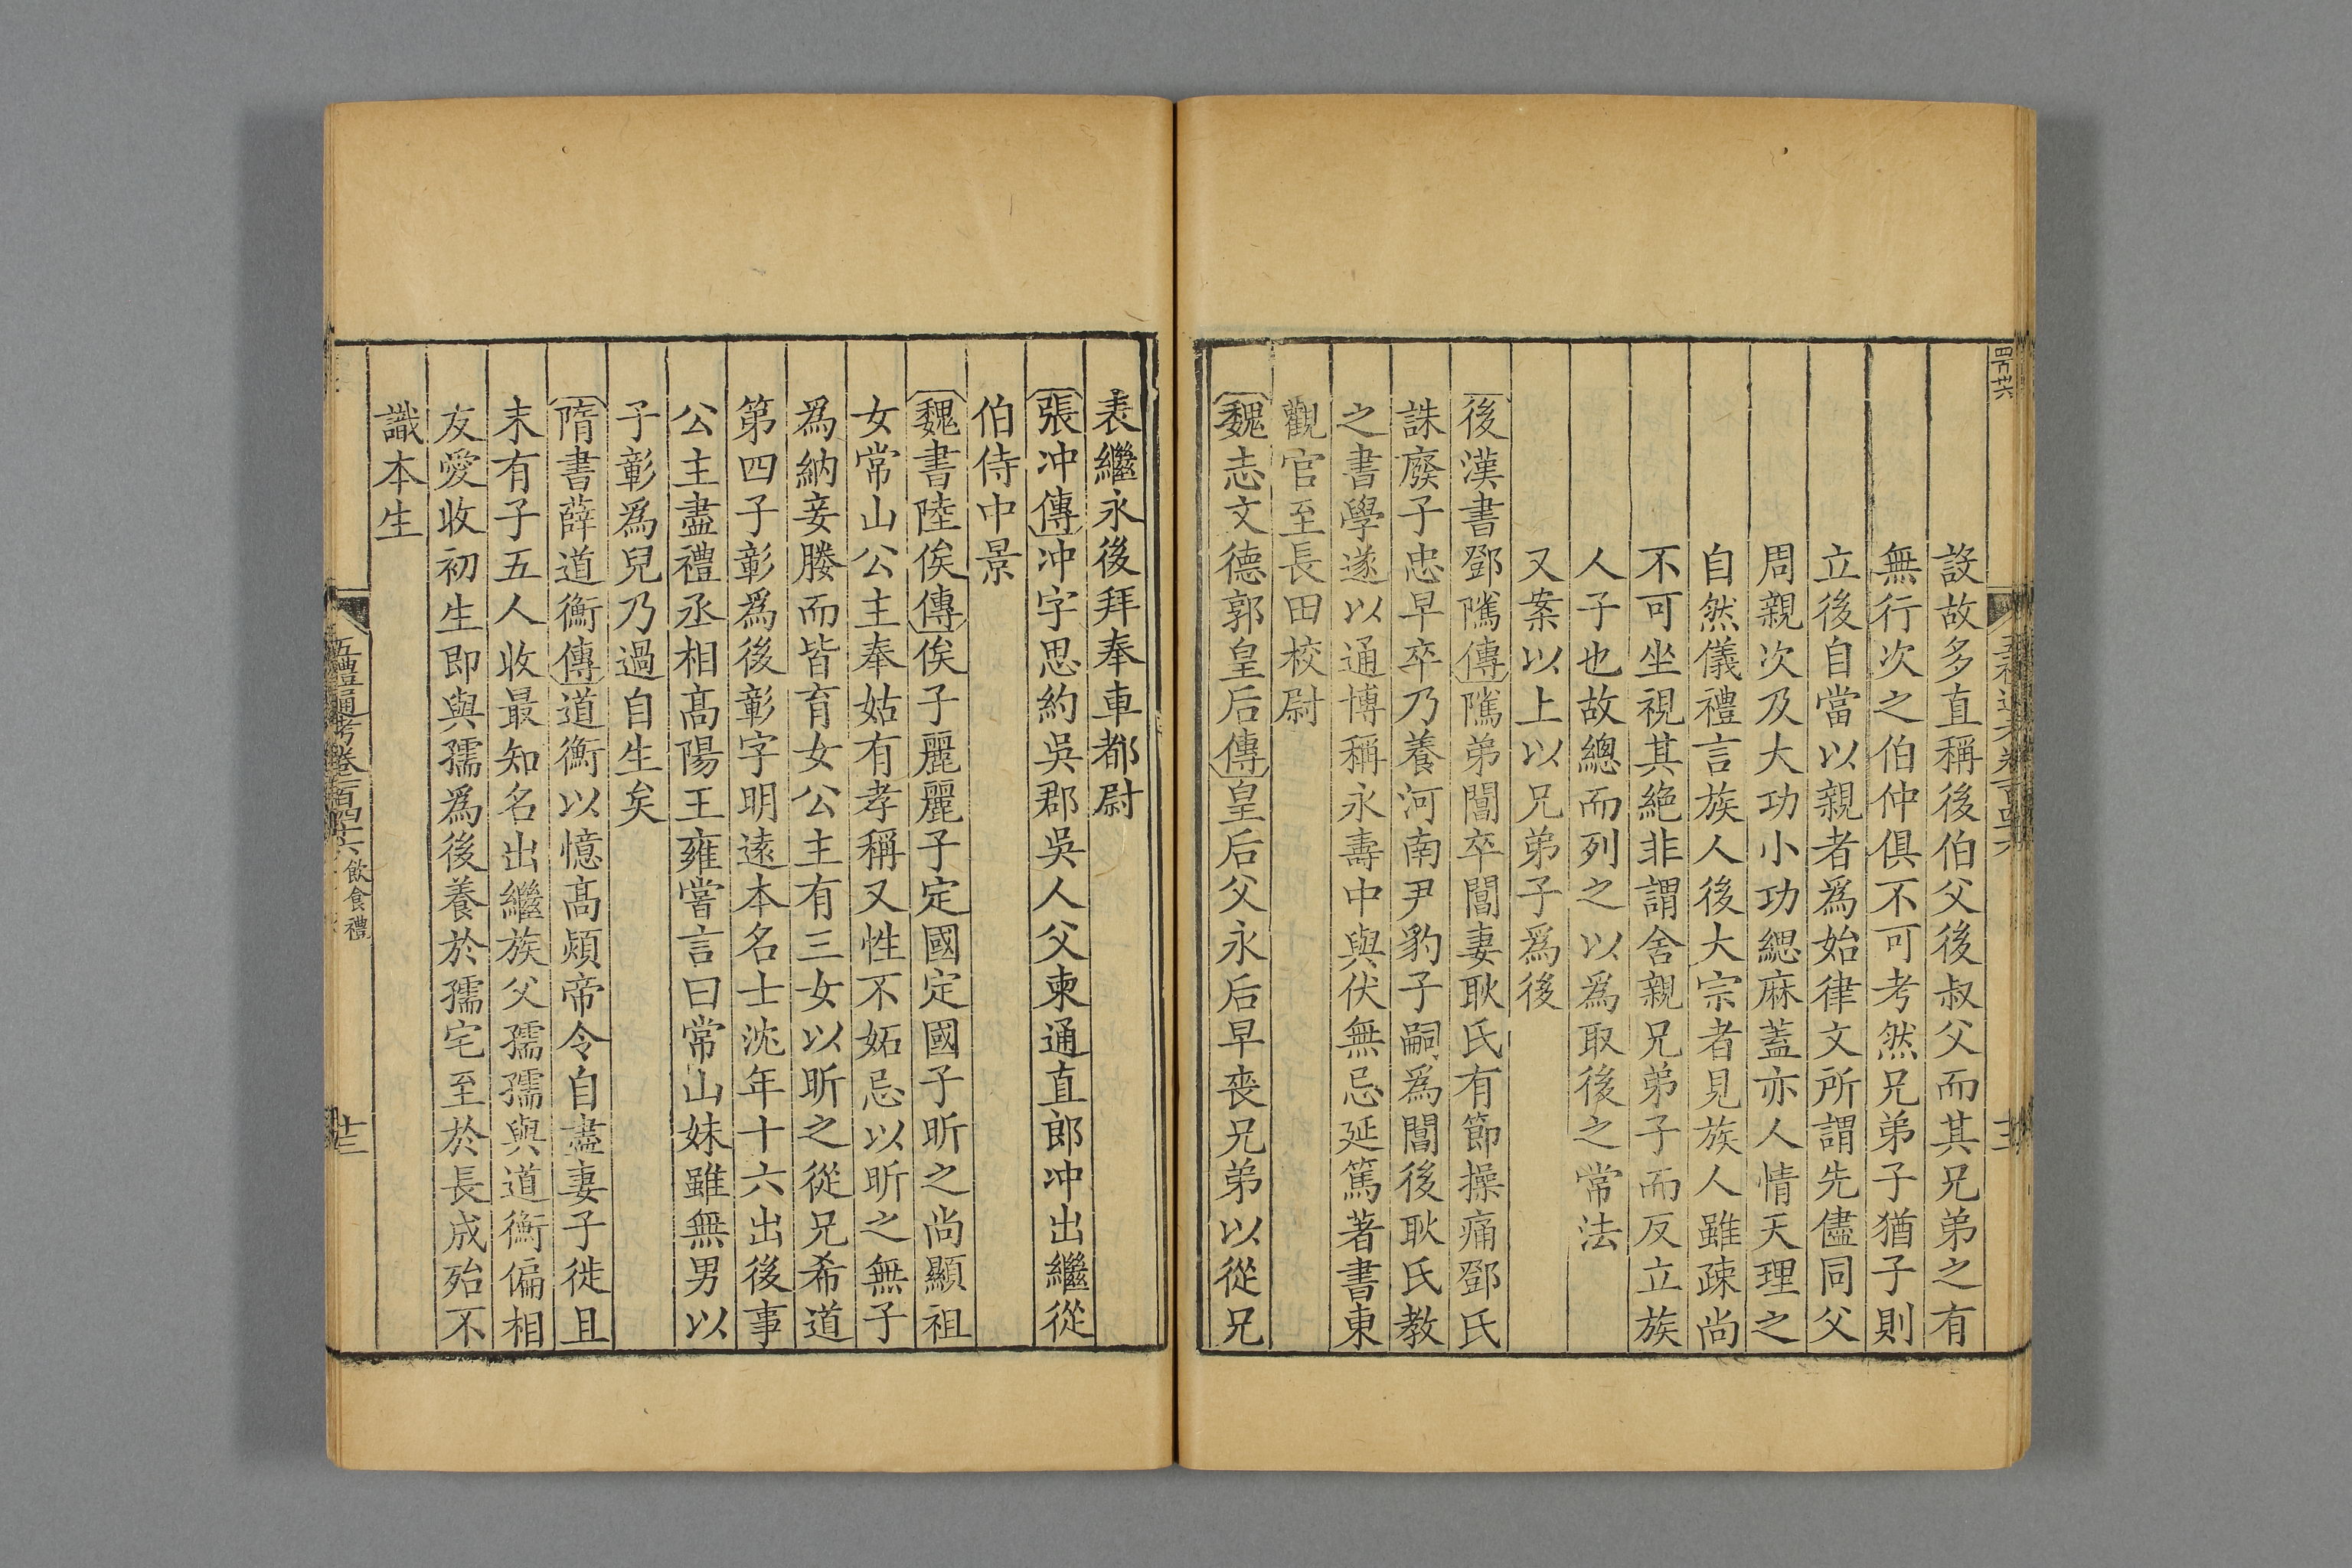 設故多直稱後伯父後叔父而其兄弟之有
無行次之伯仲俱不可考然兄弟子猶子則
立後自當以親者爲始律文所謂先儘同父
周親次及大功小功緦麻蓋亦人情天理之
自然儀禮言族人後大宗者見族人雖疎尚
不可坐視其絶非謂舍親兄弟子而反立族
人子也故總而列之以爲取後之常法
又案以上以兄弟子爲後
後漢書鄧隲傳隲弟閶卒閶妻耿氏有節操痛鄧氏
誅廢子忠早卒乃養河南尹豹子嗣爲閶後耿氏教
之書學遂以通博稱永壽中與伏無忌延篤著書東
觀官至長田校尉
魏志文德郭皇后傳皇后父永后早喪兄弟以從兄
表繼永後拜奉車都尉
張冲傳冲字思約吳郡吳人父柬通直郎冲出繼從
伯侍中景
魏書陸俟傳俟子麗麗子定國定國子昕之尚顯祖
女常山公主奉姑有孝稱又性不妬忌以昕之無子
爲納妾媵而皆育女公主有三女以昕之從兄希道
第四子彰爲後彰字明遠本名士沈年十六出後事
公主盡禮丞相高陽王雍嘗言曰常山妹雖無男以
子彰爲兒乃過自生矣
隋書薛道衡傳道衡以憶高熲帝令自盡妻子徙且
末有子五人收最知名出繼族父孺孺與道衡偏相
友愛收初生即與孺爲後養於孺宅至於長成殆不
識本生
五禮通考卷一百四十六 飲食禮
十三